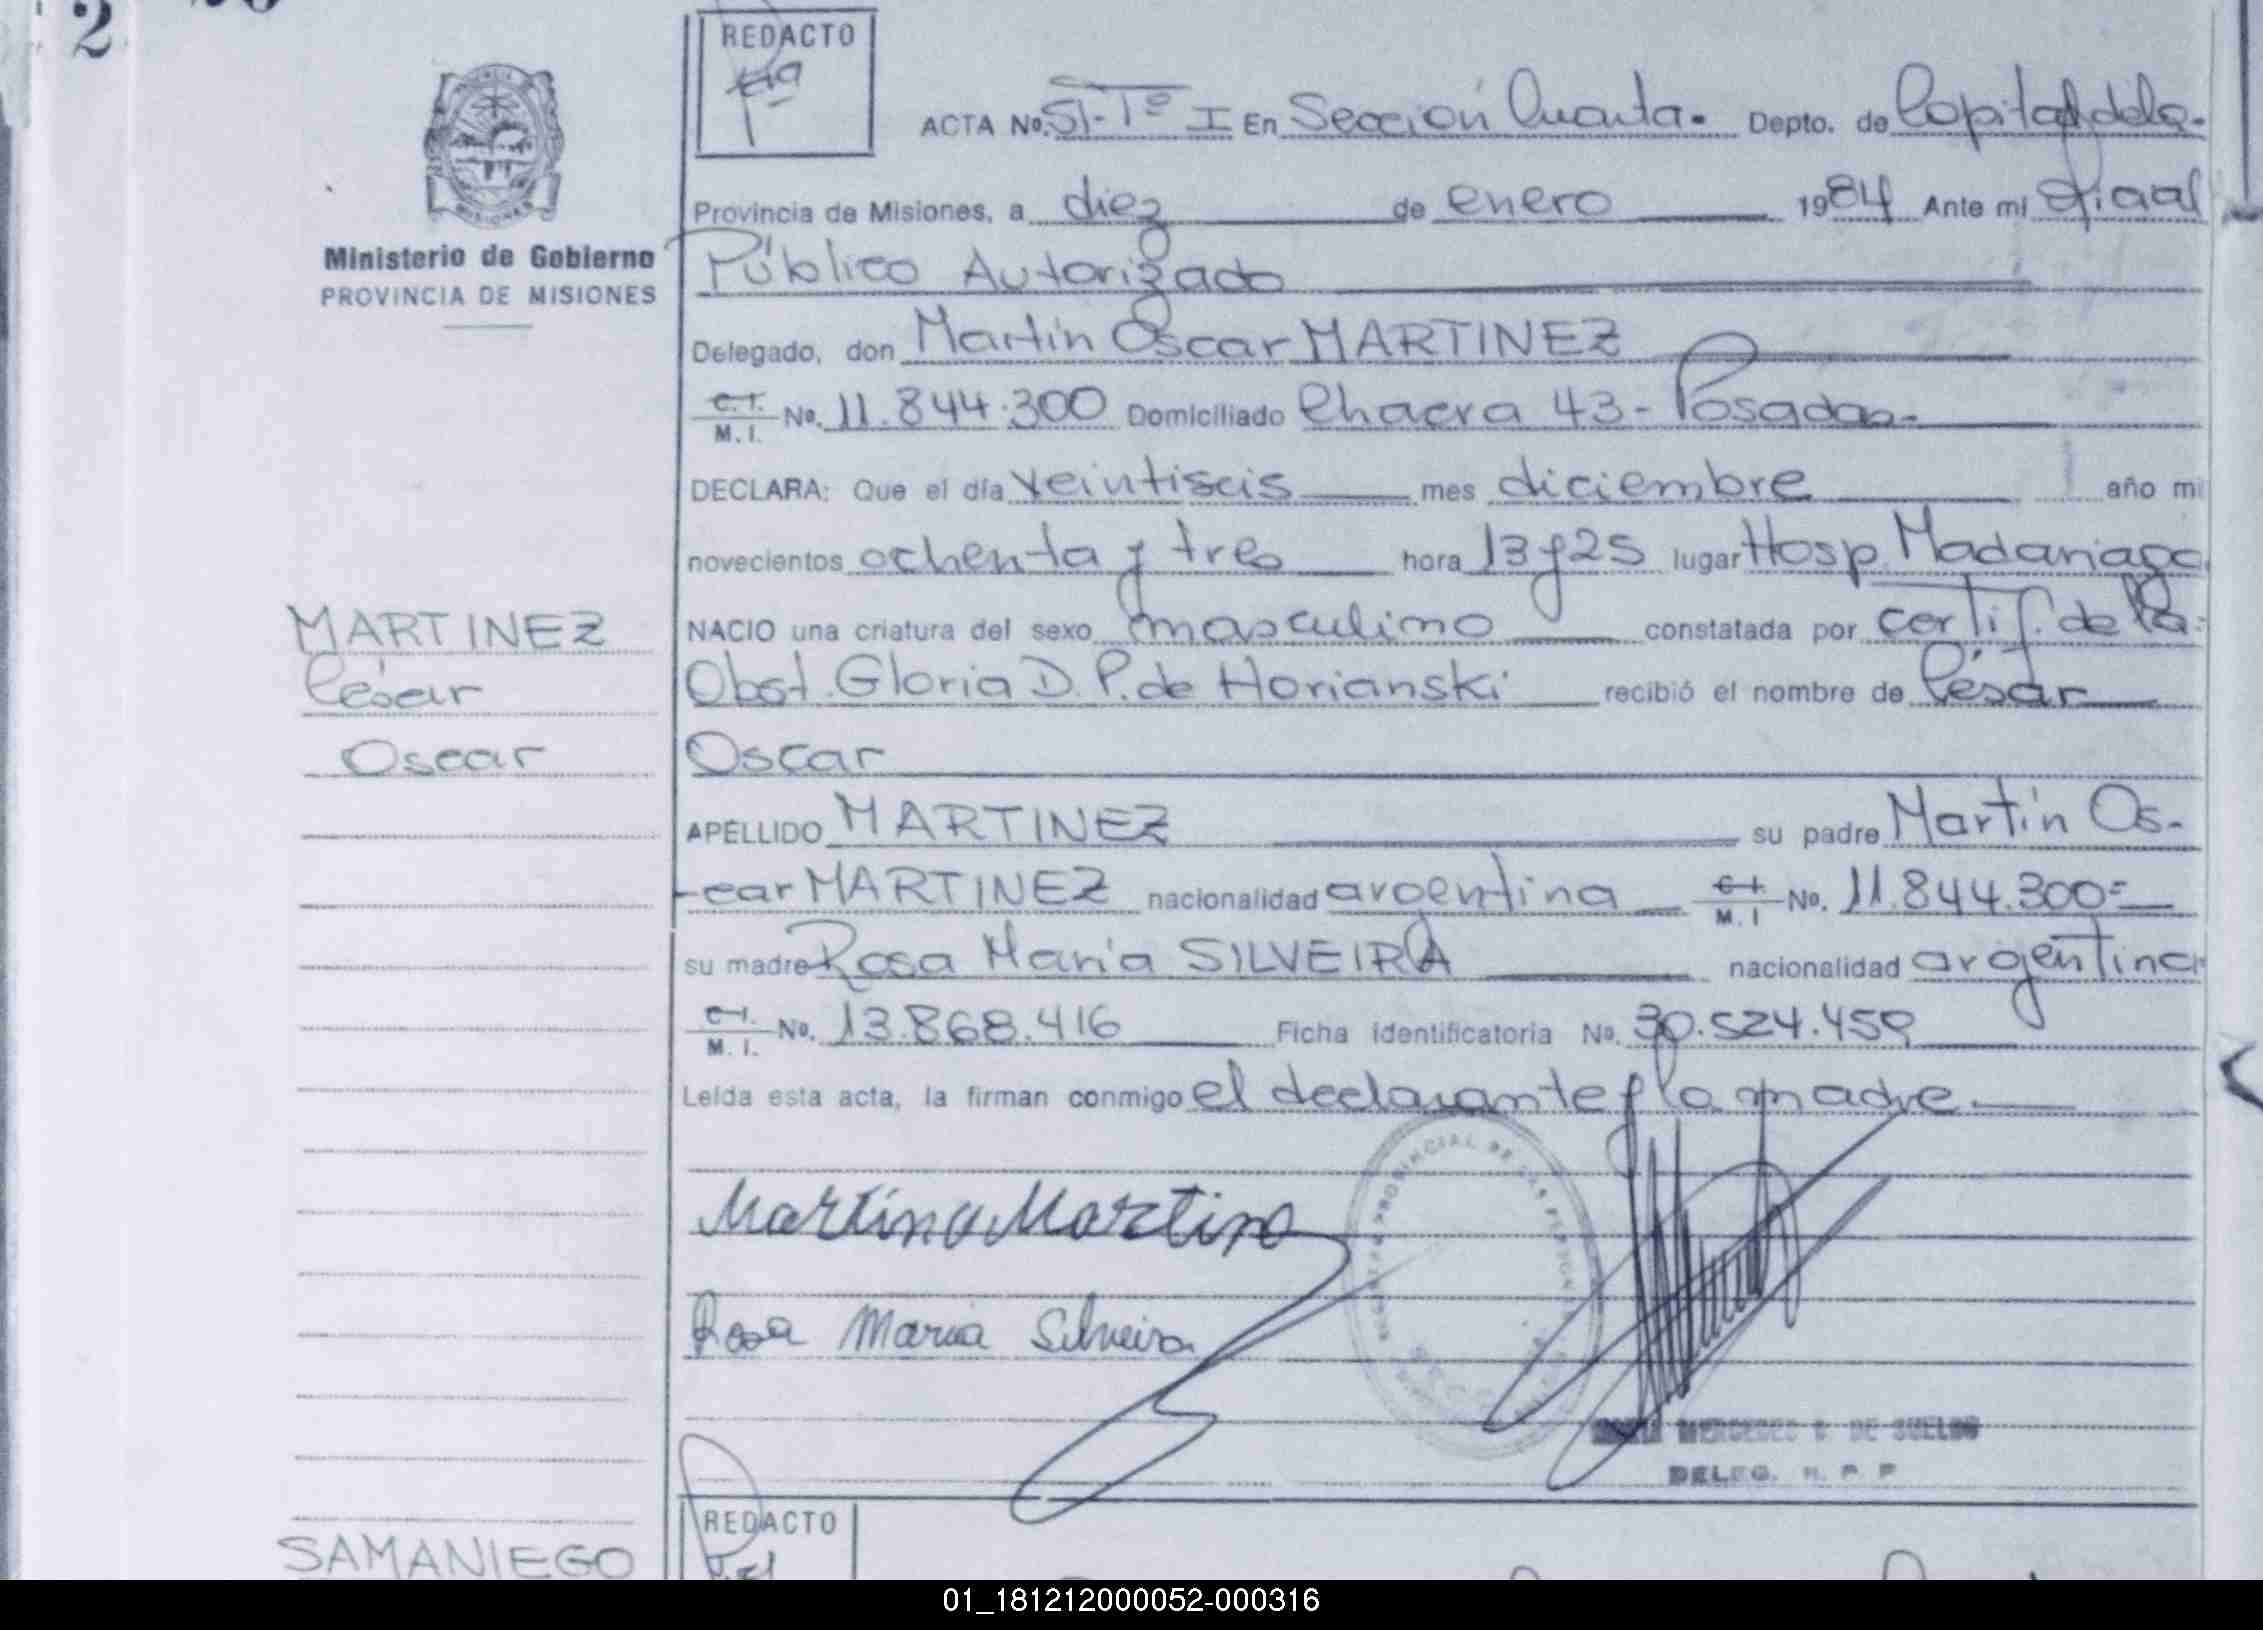 2
REDACTO
ACTA No. 51-Tº I En Sección Cuarta. Depto. de Capital de la.
Provincia de Misiones, a diez de enero 1984 Ante mi Oficial
Ministerio de Gobierno
PROVINCIA DE MISIONES
Público Autorizado
Delegado, don Martín Oscar MARTINEZ
C.I. M.I. No. 11.844.300 Domiciliado Chacra 43 - Posadas.-
DECLARA: Que el día veintiseis mes diciembre año mi
novecientos ochenta y tres hora 13 y 25 lugar Hosp. Madariaga
MARTINEZ
César
Oscar
NACIO una criatura del sexo masculino constatada por certif. de la
Obst. Gloria D. P. de Horianski recibió el nombre de César
Oscar
APELLIDO MARTINEZ su padre Martín Os-
-car MARTINEZ nacionalidad argentina C.I. M.I No. 11.844.300=
su madre Rosa María SILVEIRA nacionalidad argentina
C.I. M.I. No. 13.868.416 Ficha identificatoria No. 30.524.459
Leída esta acta, la firman conmigo el declarante y la madre.
Martin O Martinez
Rosa Maria Silveira
MERCEDES DE SUELDO
DELEG. R. P. P
SAMANIEGO
REDACTO
01_181212000052-000316